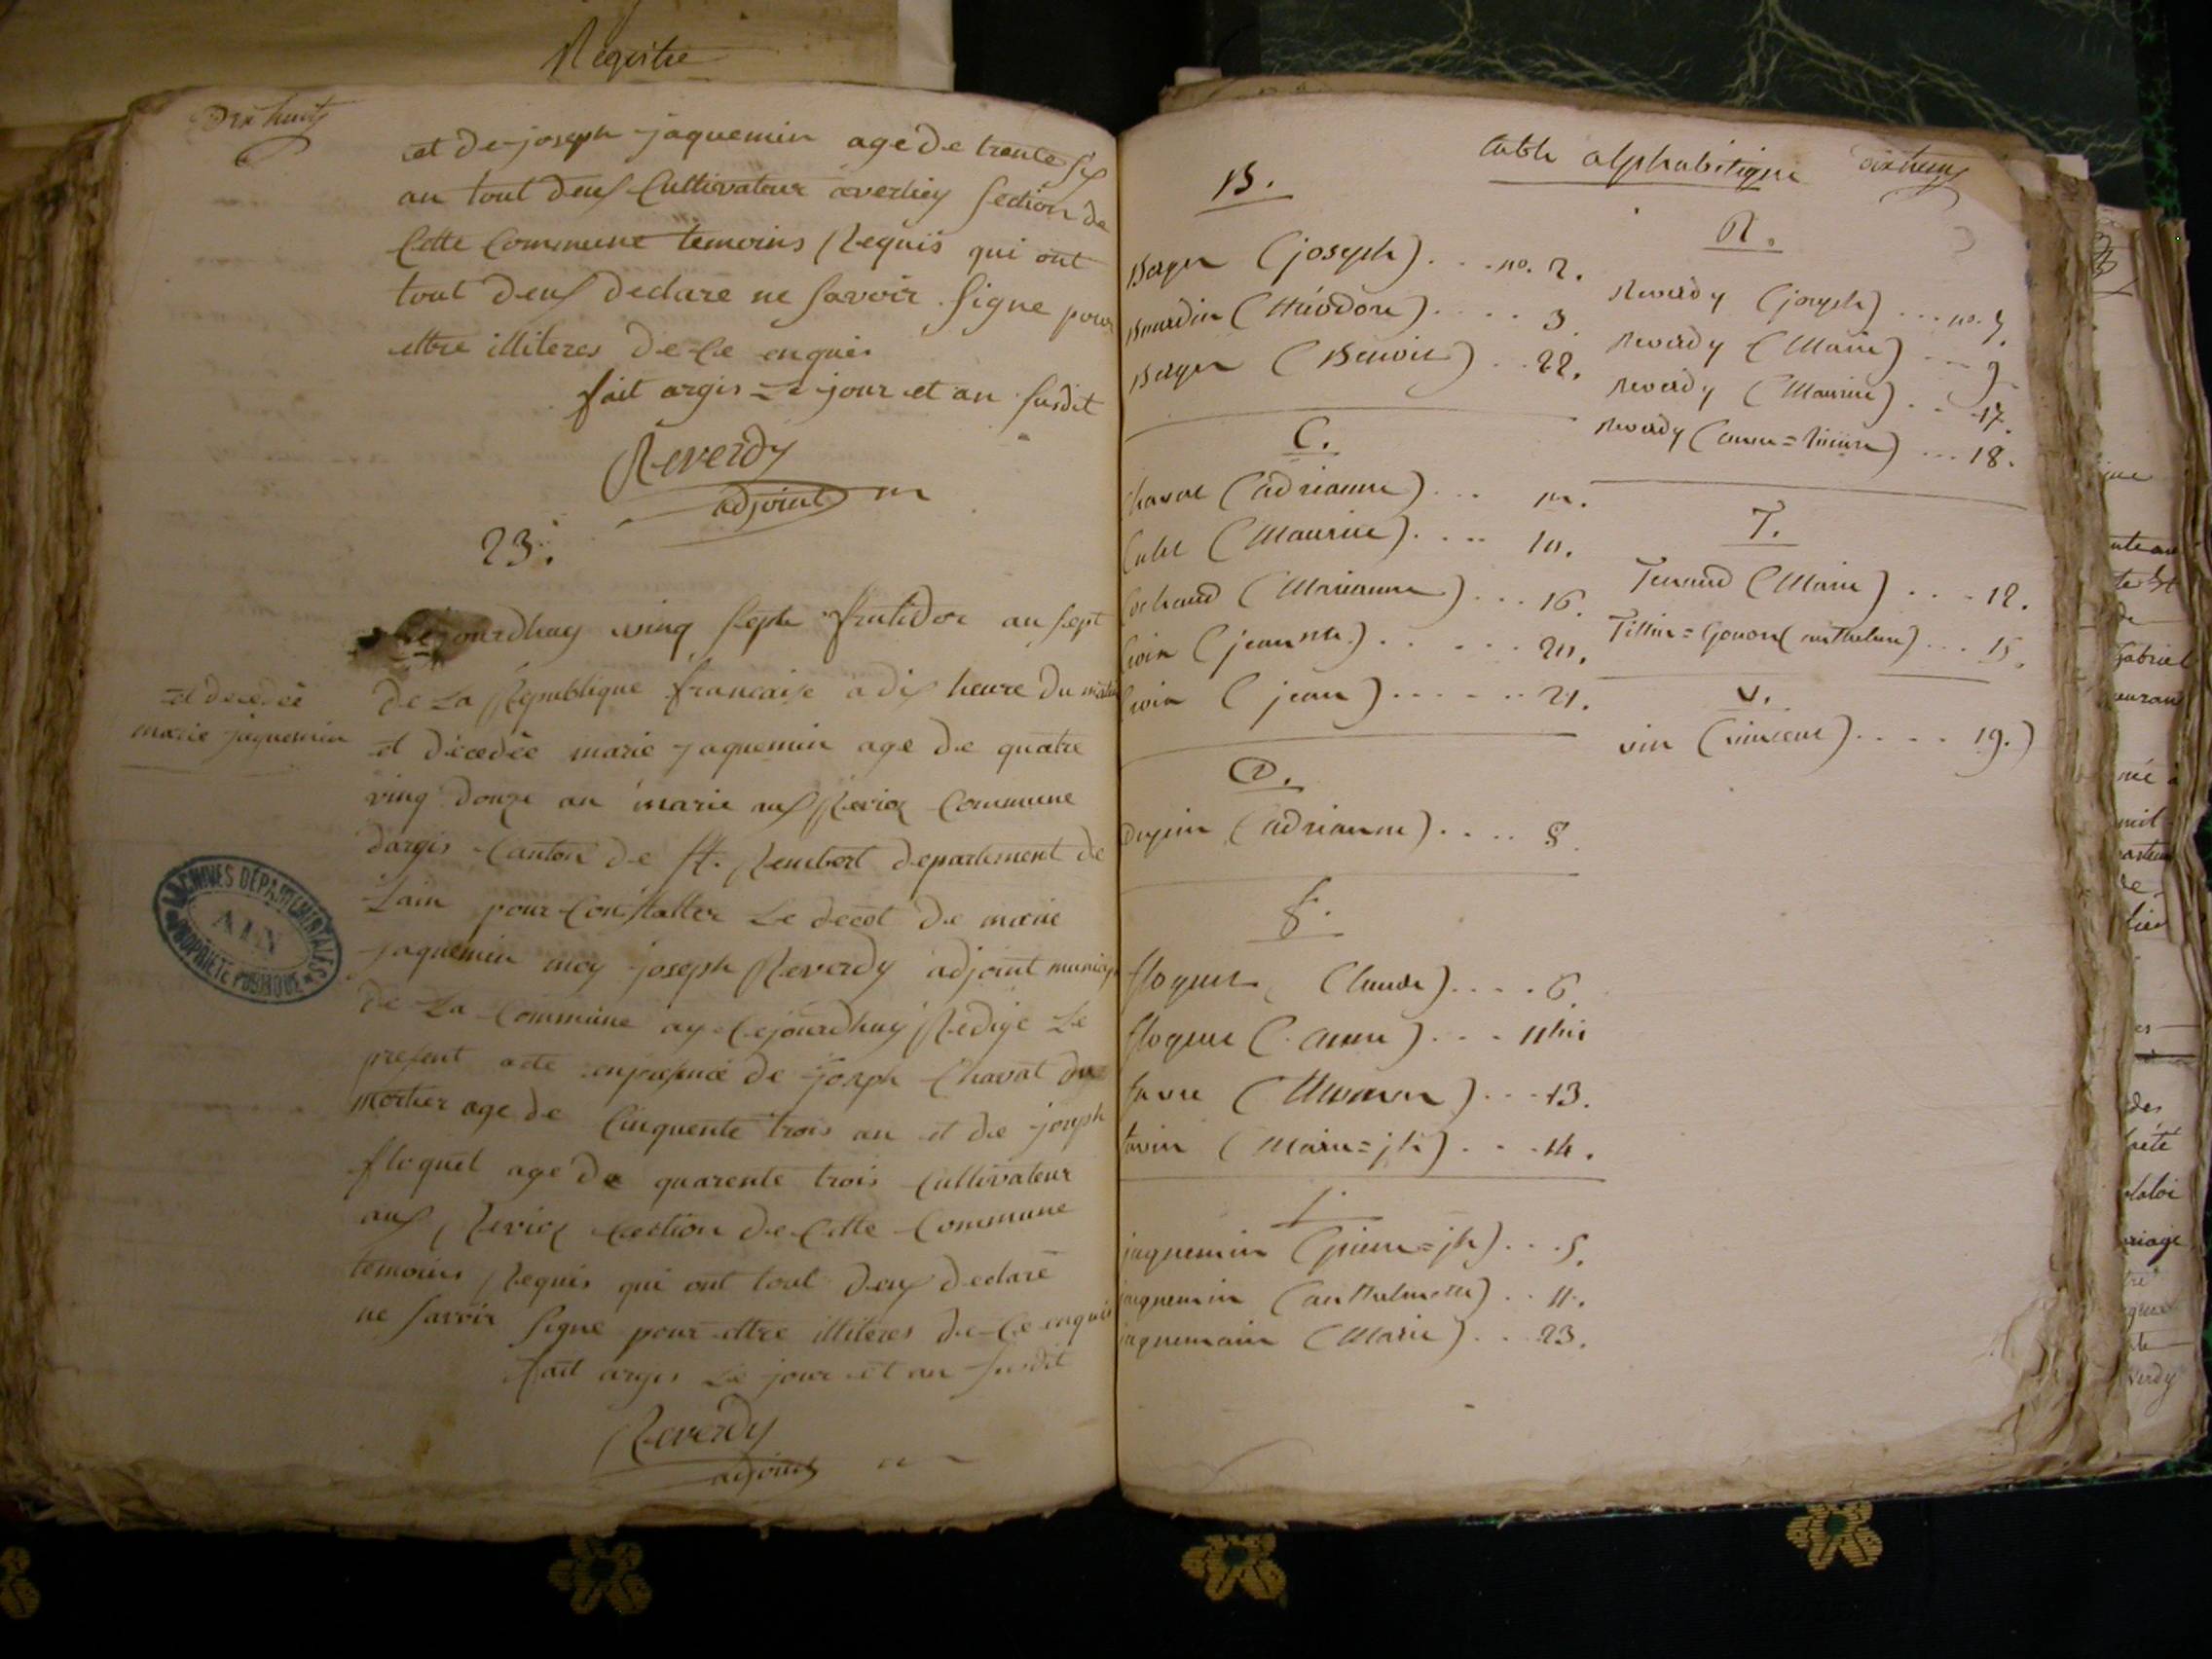 Registre
Dix huit
et de joseph jaquemin age de trente six
an tout deux Cultivateur averliey Section de
Cette Commune temoins Requis qui ont
tout deux declare ne savoir signe pour
ettre illiteres de Ce enquis
fait argis Le jour et an susdit
Reverdy
adjoint
23.
Cejourdhuy ving sept fructidor an sept
de La Republique francaise a dix heure du matin
et décedée marie jaquemin age de quatre
ving douze an marie aux Revier Commune
dargis Canton de St. Rembert departement de
Lain pour Constatter Le decet de marie
jaquemin moy joseph Reverdy adjoint municip
de La Commune ay Cejourdhuy Redige Le
present acte en presence de joseph Chavat du
mortier age de Cinquente trois an et de joseph
floquet age de quarente trois Cultivateur
aux Revier Section de Cette Commune
temoins Requis qui ont tout deux declare
ne savoir signe pour ettre illiteres de Ce enquis
fait argis Le jour et an susdit
Reverdy
adjoint
et décedée
marie jaquemin
ARCHIVES DÉPARTEMENTALES
AIN
PROPRIÉTÉ PUBLIQUE
table alphabétique
B.
Berger (joseph) . . . no. 2.
Bourdin (théodore) . . . . 3.
Berger (Benoit) . . 22.
C.
Chavat (adrianne) . . .
(Maurice) . . . . 10.
Cochaud (Marianne) . . . 16.
(jeanne) . . . . . 20.
(jean) . . . . . . 21.
D.
Dupin (adrianne) . . . . 8.
F.
floquet (Claude) . . . . 6.
floquet (anne) . . . 11 bis
favre . . . 13.
favin (Marie=jh) . . . 14.
J.
jaquemin (pierre=jh) . . . 5.
jaquemin (anthelmette) . . 11.
jaquemain (Marie) . . . 23.
R.
Reverdy (joseph) . . . no. 7.
Reverdy (Marie) . . . 9.
Reverdy (Maurice) . . . 17.
Reverdy (anne= ) . . . 18.
T.
Tenand (Marie) . . . . 12.
Gonon (anthelme) . . . 15.
V.
vin (vincent) . . . . 19.)